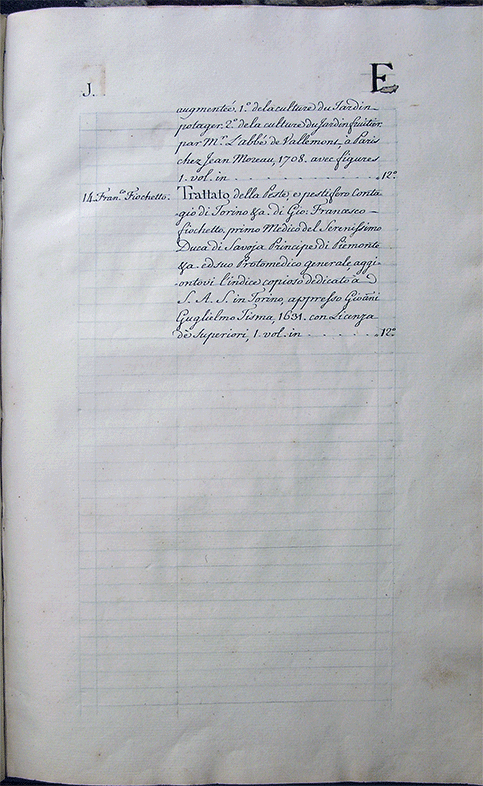 J.
E
augmenteé. 1.º de la culture du Jardin
potager. 2.º de la culture du Jardin fruitier.
par M.r L'abbé de Vallemont, a Paris
chez Jean Moreau, 1708. avec figures
1. vol. in . . . . . . . . . . 12.º
14. Fran.co Fiochetto. Trattato della Peste, e pestifero Conta-
gio di Torino &a. di Gio: Francesco
fiochetto primo Medico del Serenissimo
Duca di Savoja Principe di Piemonte
&a. ed suo Protomedico generale, aggi-
ontovi l'indice copioso dedicato à
S. A. S. in Torino, appresso Gioãni
Guglielmo Tisma, 1631. con Licenza
de Superiori, 1. vol. in . . . . . . . 12.º